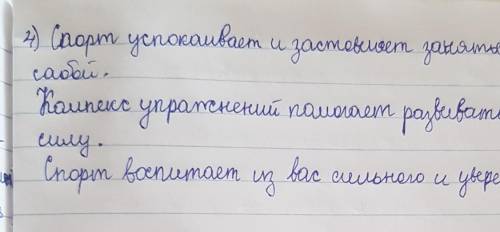 4) Спорт успокаивает и заставляет занятье
саобой.
Компекс упражнений помогает развивать
силу.
Спорт воспитает из вас сильного и увере